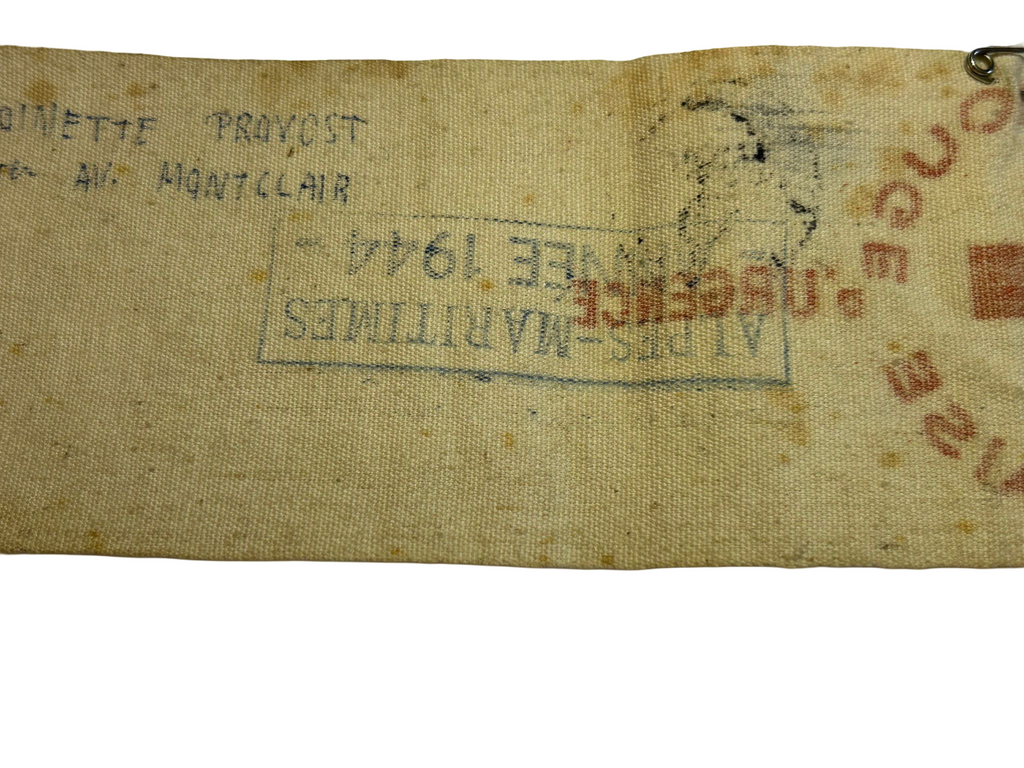 OINETTE PROVOST
AV. MONTCLAIR
ALPES-MARITIMES
- ANNÉE 1944 -
D'URGENCE
OUGE